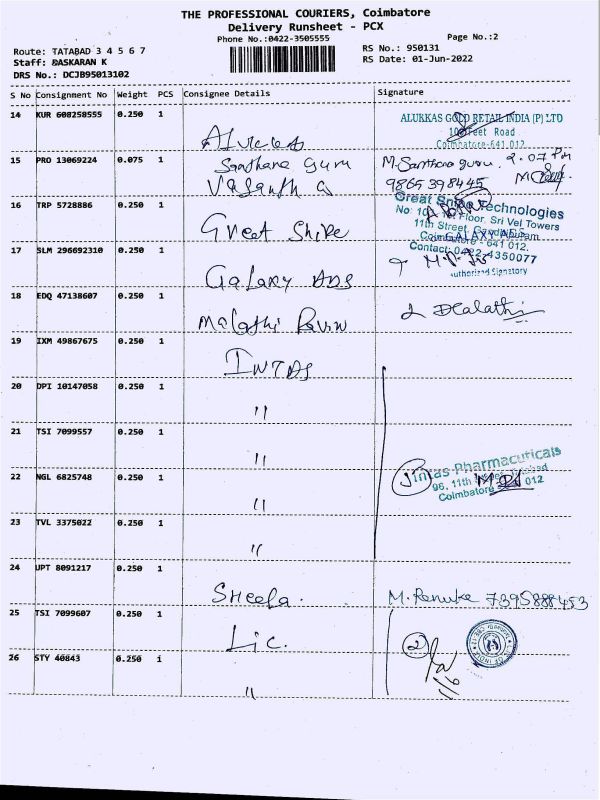 THE PROFESSIONAL COURIERS, Coimbatore
Delivery Runsheet - PCX
Phone No.:0422-3505555
Page No.:2
Route: TATABAD 3 4 5 6 7
RS No.: 950131
Staff: BASKARAN K
RS Date: 01-Jun-2022
DRS No.: DCJB95013102
S No Consignment No Weight PCS Consignee Details Signature
14 KUR 608258555 0.250 1
ALUKKAS GOLD RETAIL INDIA (P) LTD
100 Feet Road
Coimbatore-641 012
15 PRO 13069224 0.075 1 Santhana Guru M.Santhana guru. 2.07 PM
Vasanth a 9865398445
16 TRP 5728886 0.250 1 Great Shire
Great Technologies
Floor, Sri Vel Towers
11th Street,
641 012.
Contact: 0422-4350077
Authorized Signatory
17 SLM 296692310 0.250 1 Galaxy ADS
GALAXY ADS
18 EDQ 47138607 0.250 1 Malathi Pavin
19 IXM 49867675 0.250 1 INTAS
20 DPI 10147058 0.250 1 "
21 TSI 7099557 0.250 1 "
22 NGL 6825748 0.250 1 "
Intas Pharmaceuticals
96, 11th
Coimbatore 012
23 TVL 3375022 0.250 1 "
24 UPT 8091217 0.250 1 Sheela. M.Renuka 7395888453
25 TSI 7099607 0.250 1 Lic. 2
26 STY 40843 0.250 1 "